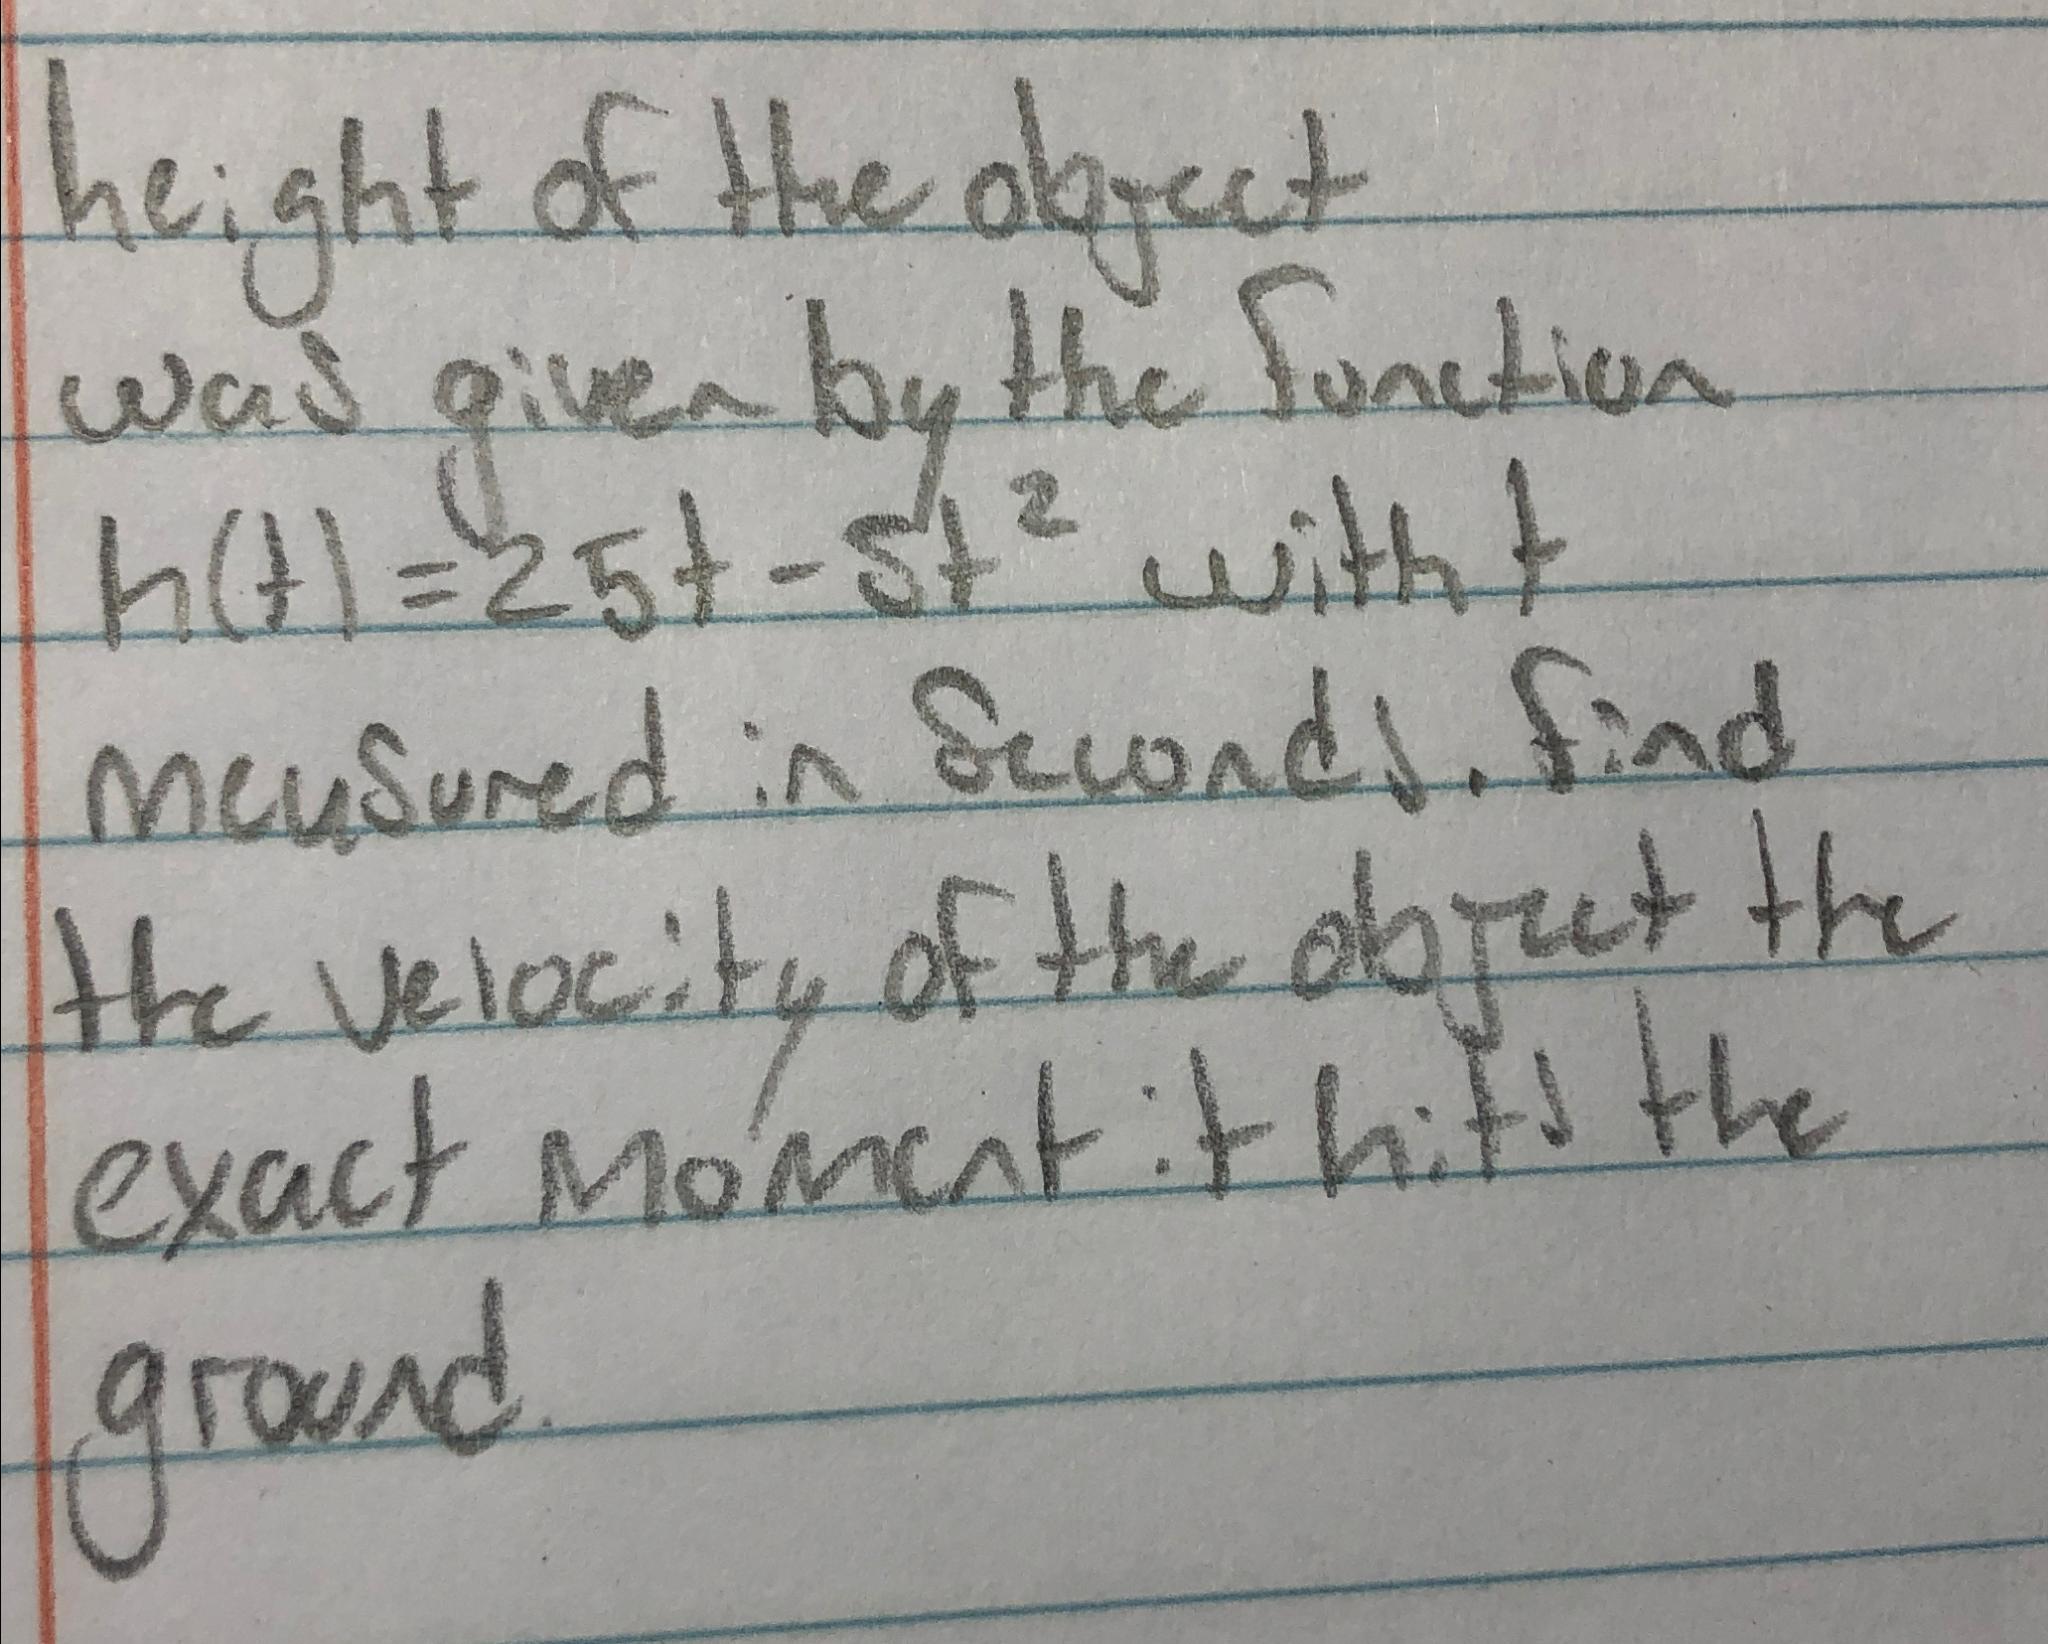 height of the object
was given by the function
h(t) = 25t - 5t² with t
measured in seconds. find
the velocity of the object the
exact moment it hits the
ground.